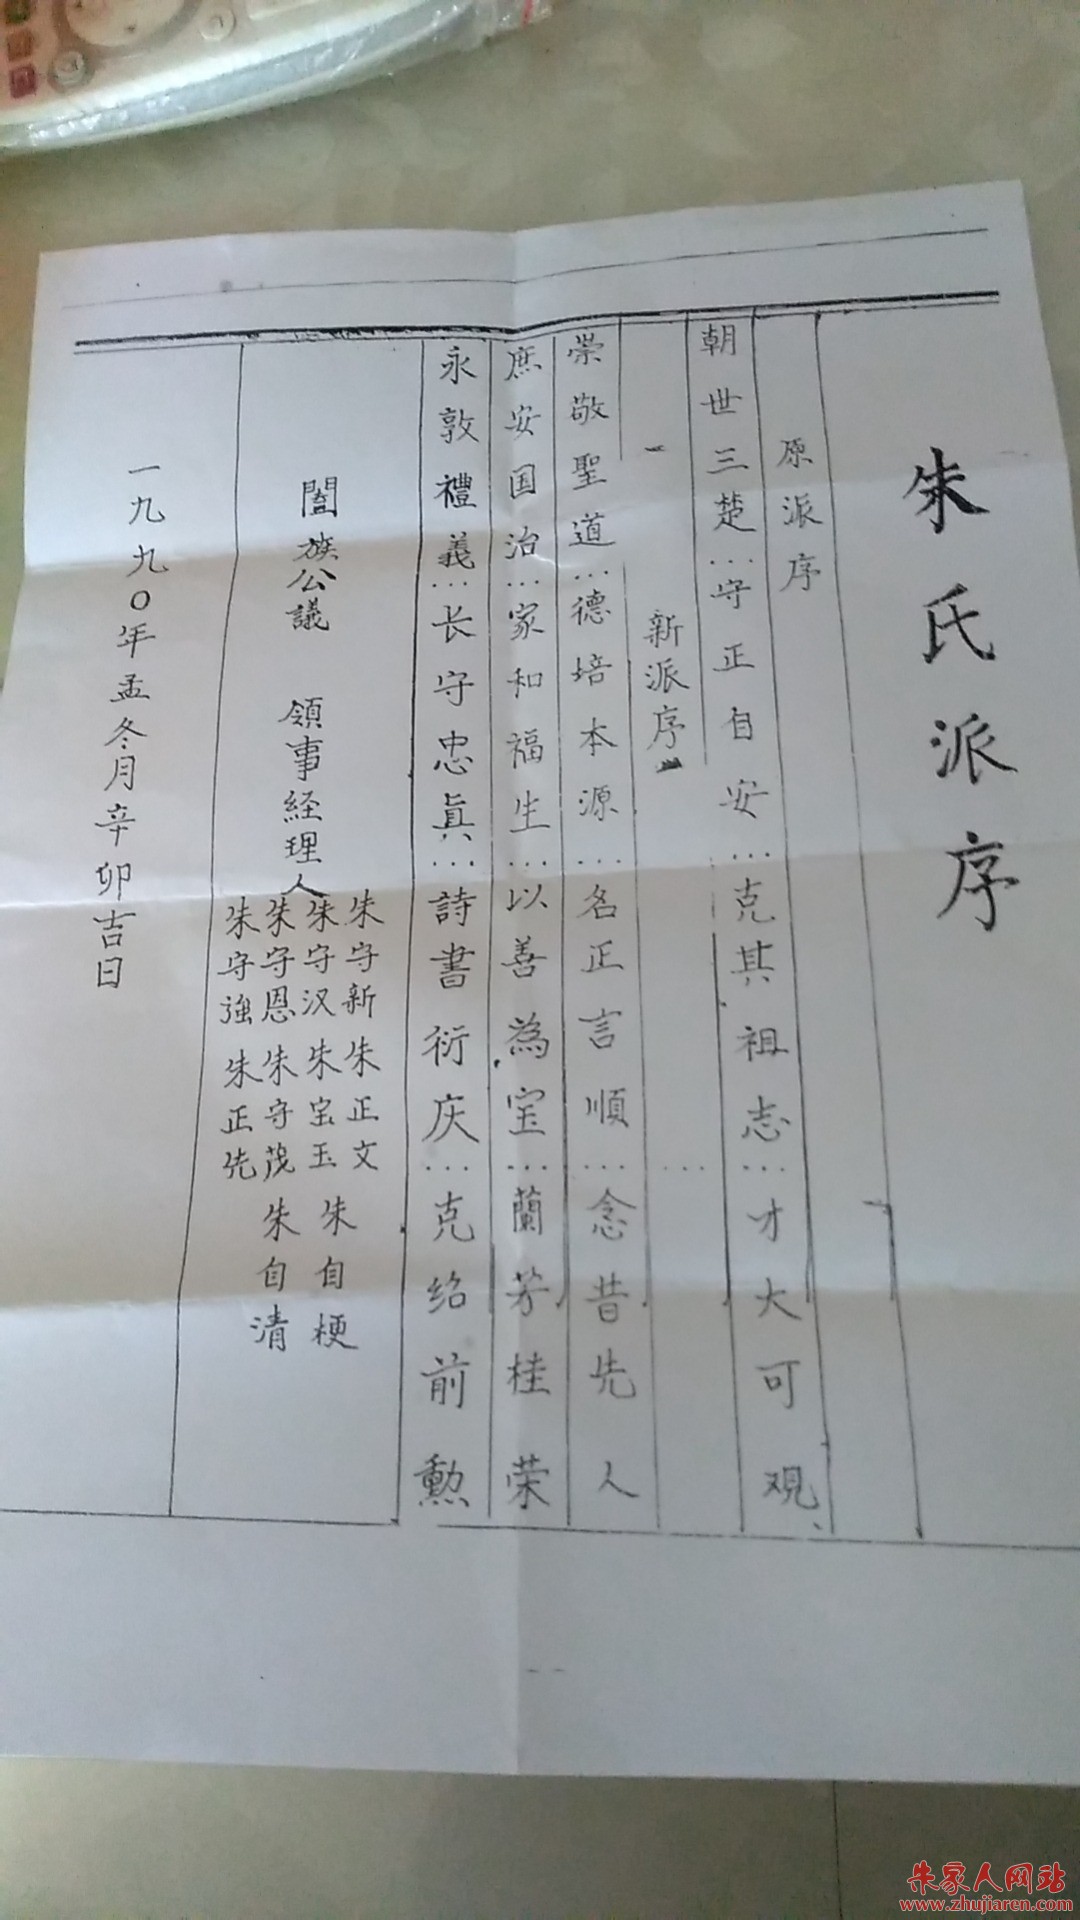 朱氏派序
原派序
朝世三楚…守正自安…克其祖志…才大可观
新派序
崇敬聖道…德培本源…名正言順…念昔先人
庶安国治…家和福生…以善為宝…蘭芳桂荣
永敦禮義…长守忠真…詩書衍庆…克绍前勲
闔族公議 領事経理人
朱守新 朱正文
朱守汉 朱宝玉 朱自梗
朱守恩 朱守茂 朱自清
朱守強 朱正先
一九九〇年孟冬月辛卯吉日
朱家人网站
www.zhujiaren.com